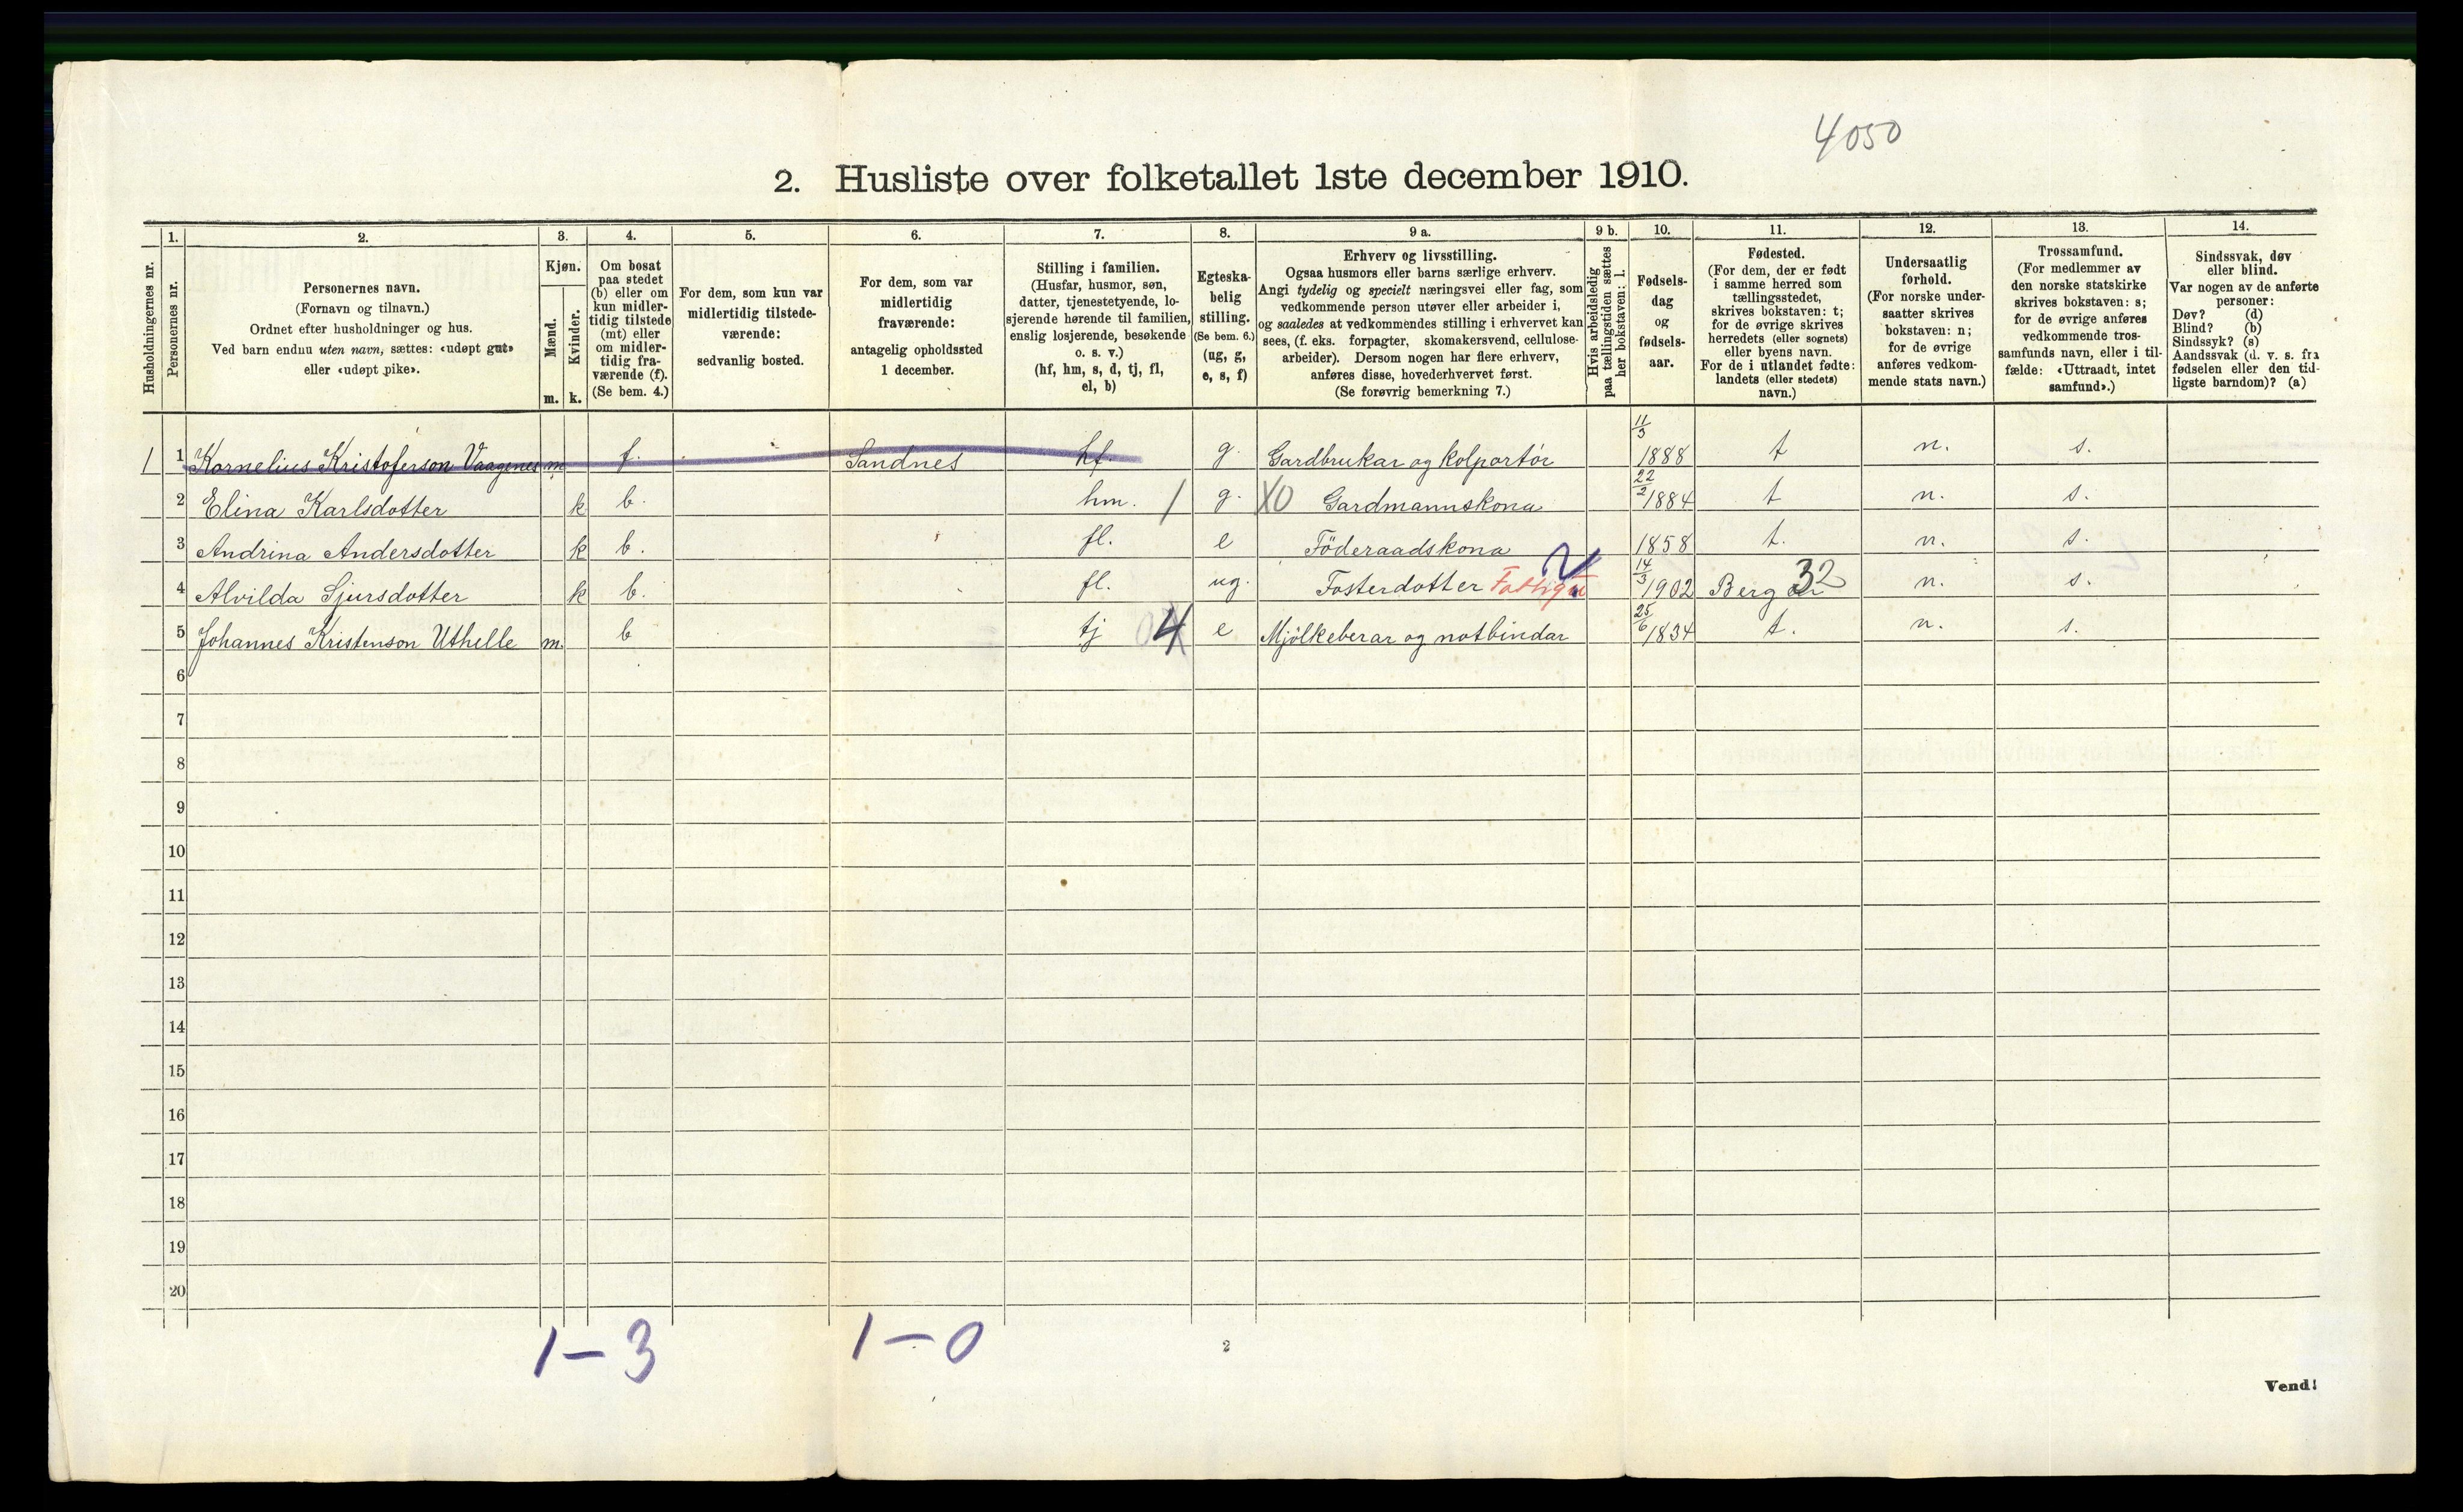 4050
2. Husliste over folketallet 1ste december 1910.
Husholdningernes nr.
1.
Personernes nr.
2.
Personernes navn.
(Fornavn og tilnavn.)
Ordnet efter husholdninger og hus.
Ved barn endnu uten navn, sættes: «udøpt gut»
eller «udøpt pike».
3.
Kjøn.
Mænd.
Kvinder.
m. k.
4.
Om bosat
paa stedet
(b) eller om
kun midler-
tidig tilstede
(mt) eller
om midler-
tidig fra-
værende (f).
(Se bem. 4.)
5.
For dem, som kun var
midlertidig tilstede-
værende:
sedvanlig bosted.
6.
For dem, som var
midlertidig
fraværende:
antagelig opholdssted
1 december.
7.
Stilling i familien.
(Husfar, husmor, søn,
datter, tjenestetyende, lo-
sjerende hørende til familien,
enslig losjerende, besøkende
o. s. v.)
(hf, hm, s, d, tj, fl,
el, b)
8.
Egteska-
belig
stilling.
(Se bem. 6.)
(ug, g,
e, s, f)
9 a.
Erhverv og livsstilling.
Ogsaa husmors eller barns særlige erhverv.
Angi tydelig og specielt næringsvei eller fag, som
vedkommende person utøver eller arbeider i,
og saaledes at vedkommendes stilling i erhvervet kan
sees, (f. eks. forpagter, skomakersvend, cellulose-
arbeider). Dersom nogen har flere erhverv,
anføres disse, hovederhvervet først.
(Se forøvrig bemerkning 7.)
9 b.
Hvis arbeidsledig
paa tællingstiden sættes
her bokstaven: l.
10.
Fødsels-
dag
og
fødsels-
aar.
11.
Fødested.
(For dem, der er født
i samme herred som
tællingsstedet,
skrives bokstaven: t;
for de øvrige skrives
herredets (eller sognets)
eller byens navn.
For de i utlandet fødte:
landets (eller stedets)
navn.)
12.
Undersaatlig
forhold.
(For norske under-
saatter skrives
bokstaven: n;
for de øvrige
anføres vedkom-
mende stats navn.)
13.
Trossamfund.
(For medlemmer av
den norske statskirke
skrives bokstaven: s;
for de øvrige anføres
vedkommende tros-
samfunds navn, eller i til-
fælde: «Uttraadt, intet
samfund».)
14.
Sindssvak, døv
eller blind.
Var nogen av de anførte
personer:
Døv? (d)
Blind? (b)
Sindssyk? (s)
Aandssvak (d. v. s. fra
fødselen eller den tid-
ligste barndom)? (a)
1 1 Kornelius Kristoferson Vaagenes m f. Sandnes hf. g. Gardbrukar og kolportör 11/3 1888 t n. s.
2 Elina Karlsdotter k b. hm. 1 g. X0 Gardmannskona 22/2 1884 t n. s.
3 Andrina Andersdotter k b. fl. e Föderaadskona 1858 t. n. s.
4 Alvilda Sjursdotter k b. fl. ug. Fosterdotter 14/3 1902 Bergen 32 n. s.
5 Johannes Kristenson Uthelle m. b tj 4 e Mjölkeberar og notbindar 25/6 1834 t. n. s.
6
7
8
9
10
11
12
13
14
15
16
17
18
19
20
1 – 3 1 – 0
2
Vend!